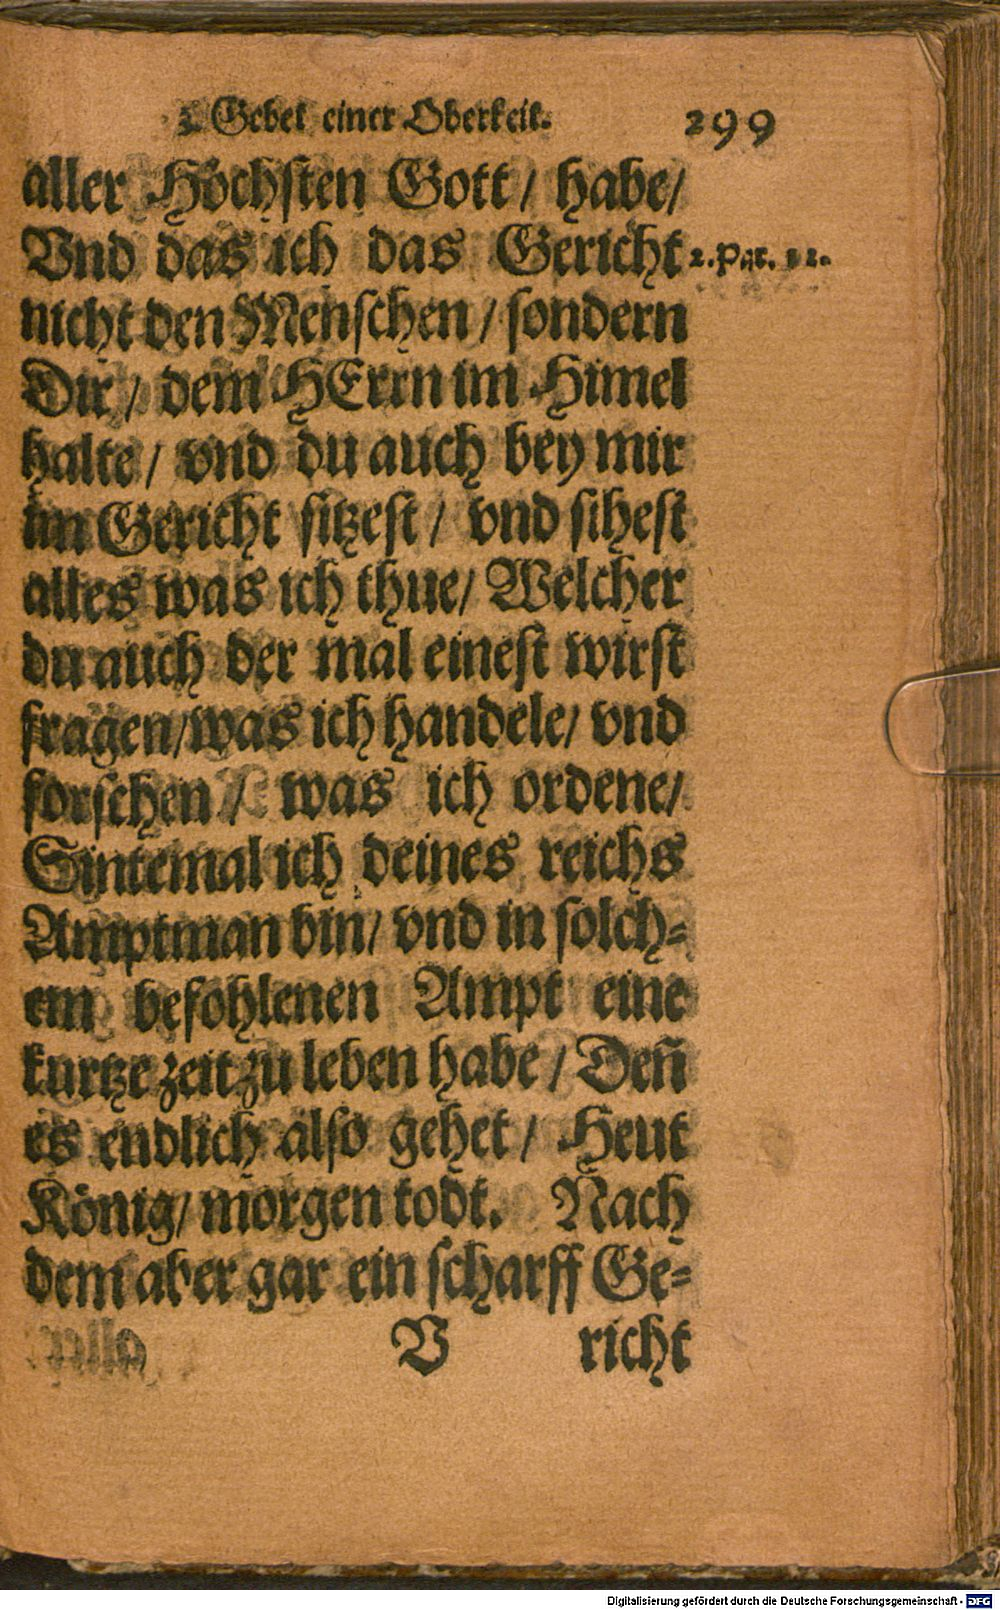 Gebet einer Oberkeit. 299
aller Höchsten Gott / habe /
Vnd das ich das Gericht
2. Par.
nicht den Menschen / sondern
Dir / dem HErrn im Himel
halte / vnd du auch bey mir
im Gericht sitzest / vnd sihest
alles was ich thue / Welcher
du auch der mal einest wirst
fragen / was ich handele / vnd
forschen / was ich ordene /
Sintemal ich deines reichs
Amptman bin / vnd in solch-
em befohlenen Ampt eine
kurtze zeit zu leben habe / Deñ
es endlich also gehet / Heut
König / morgen todt. Nach
dem aber gar ein scharff Ge-
V richt
Digitalisierung gefördert durch die Deutsche Forschungsgemeinschaft - DFG